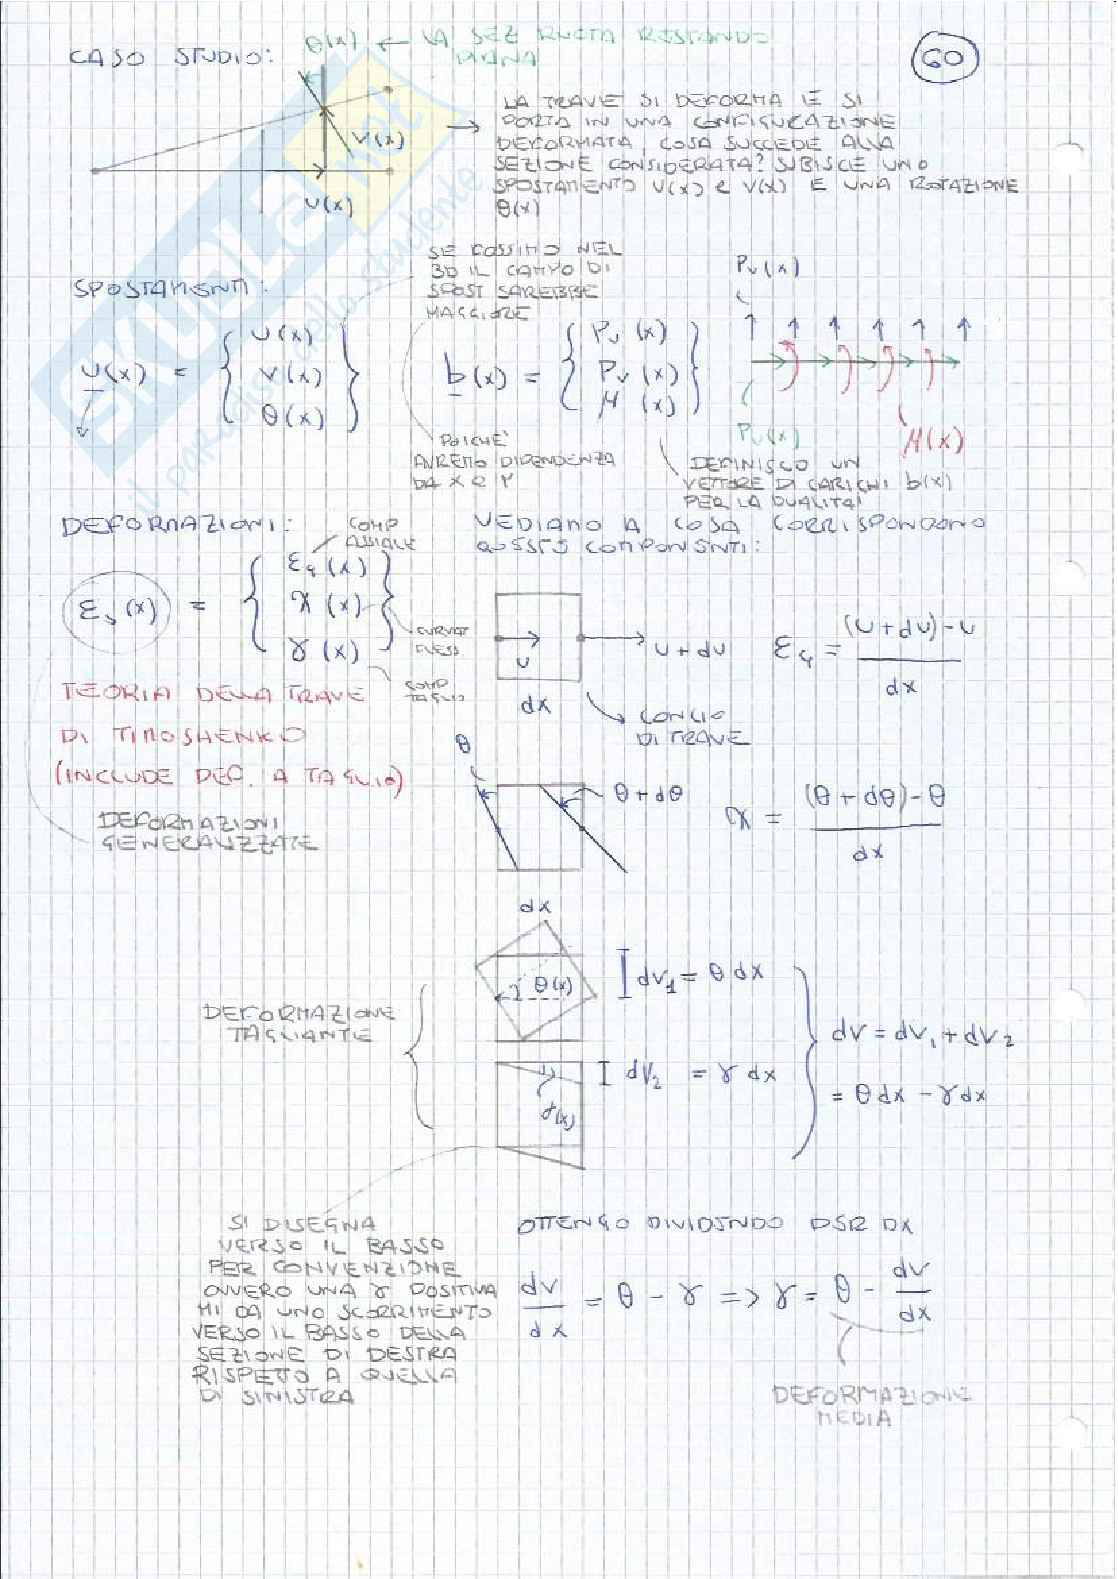 60
CASO STUDIO:
θ(x) ← LA SEZ RUOTA RESTANDO
PIANA
v(x)
u(x)
→ LA TRAVE SI DEFORMA E SI
PORTA IN UNA CONFIGURAZIONE
DEFORMATA, COSA SUCCEDE ALLA
SEZIONE CONSIDERATA? SUBISCE UNO
SPOSTAMENTO U(x) e V(x) E UNA ROTAZIONE
θ(x)
SKUOLA.net
il paradiso dello studente
SPOSTAMENTI:
SE FOSSIMO NEL
3D IL CAMPO DI
SPOST SAREBBE
MAGGIORE
u(x) = { u(x)
v(x)
θ(x) }
b(x) = { Pu (x)
Pv (x)
μ (x) }
POICHE'
AVREMO DIPENDENZA
DA X e Y
Pv(x)
Pu(x)
μ(x)
DEFINISCO UN
VETTORE DI CARICHI b(x)
PER LA DUALITA'
DEFORMAZIONI:
COMP
ASSIALE
εs(x) = { ες (x)
χ (x)
γ (x) }
CURVAT
FLESS
COMP
TAGLIO
TEORIA DELLA TRAVE
DI TIMOSHENKO
(INCLUDE DEF. A TAGLIO)
DEFORMAZIONI
GENERALIZZATE
VEDIAMO A COSA CORRISPONDONO
QUESTE COMPONENTI:
u
u + du
dx
CONCIO
DI TRAVE
ες = (u + du) - u / dx
θ
θ + dθ
dx
χ = (θ + dθ) - θ / dx
DEFORMAZIONE
TAGLIANTE
θ(x)
dv1 = θ dx
γ(x)
dv2 = γ dx
dv = dv1 + dv2
= θ dx - γ dx
SI DISEGNA
VERSO IL BASSO
PER CONVENZIONE
OVVERO UNA γ POSITIVA
MI DA UNO SCORRIMENTO
VERSO IL BASSO DELLA
SEZIONE DI DESTRA
RISPETTO A QUELLA
DI SINISTRA
OTTENGO DIVIDENDO PER DX
dv / dx = θ - γ => γ = θ - dv / dx
DEFORMAZIONE
MEDIA